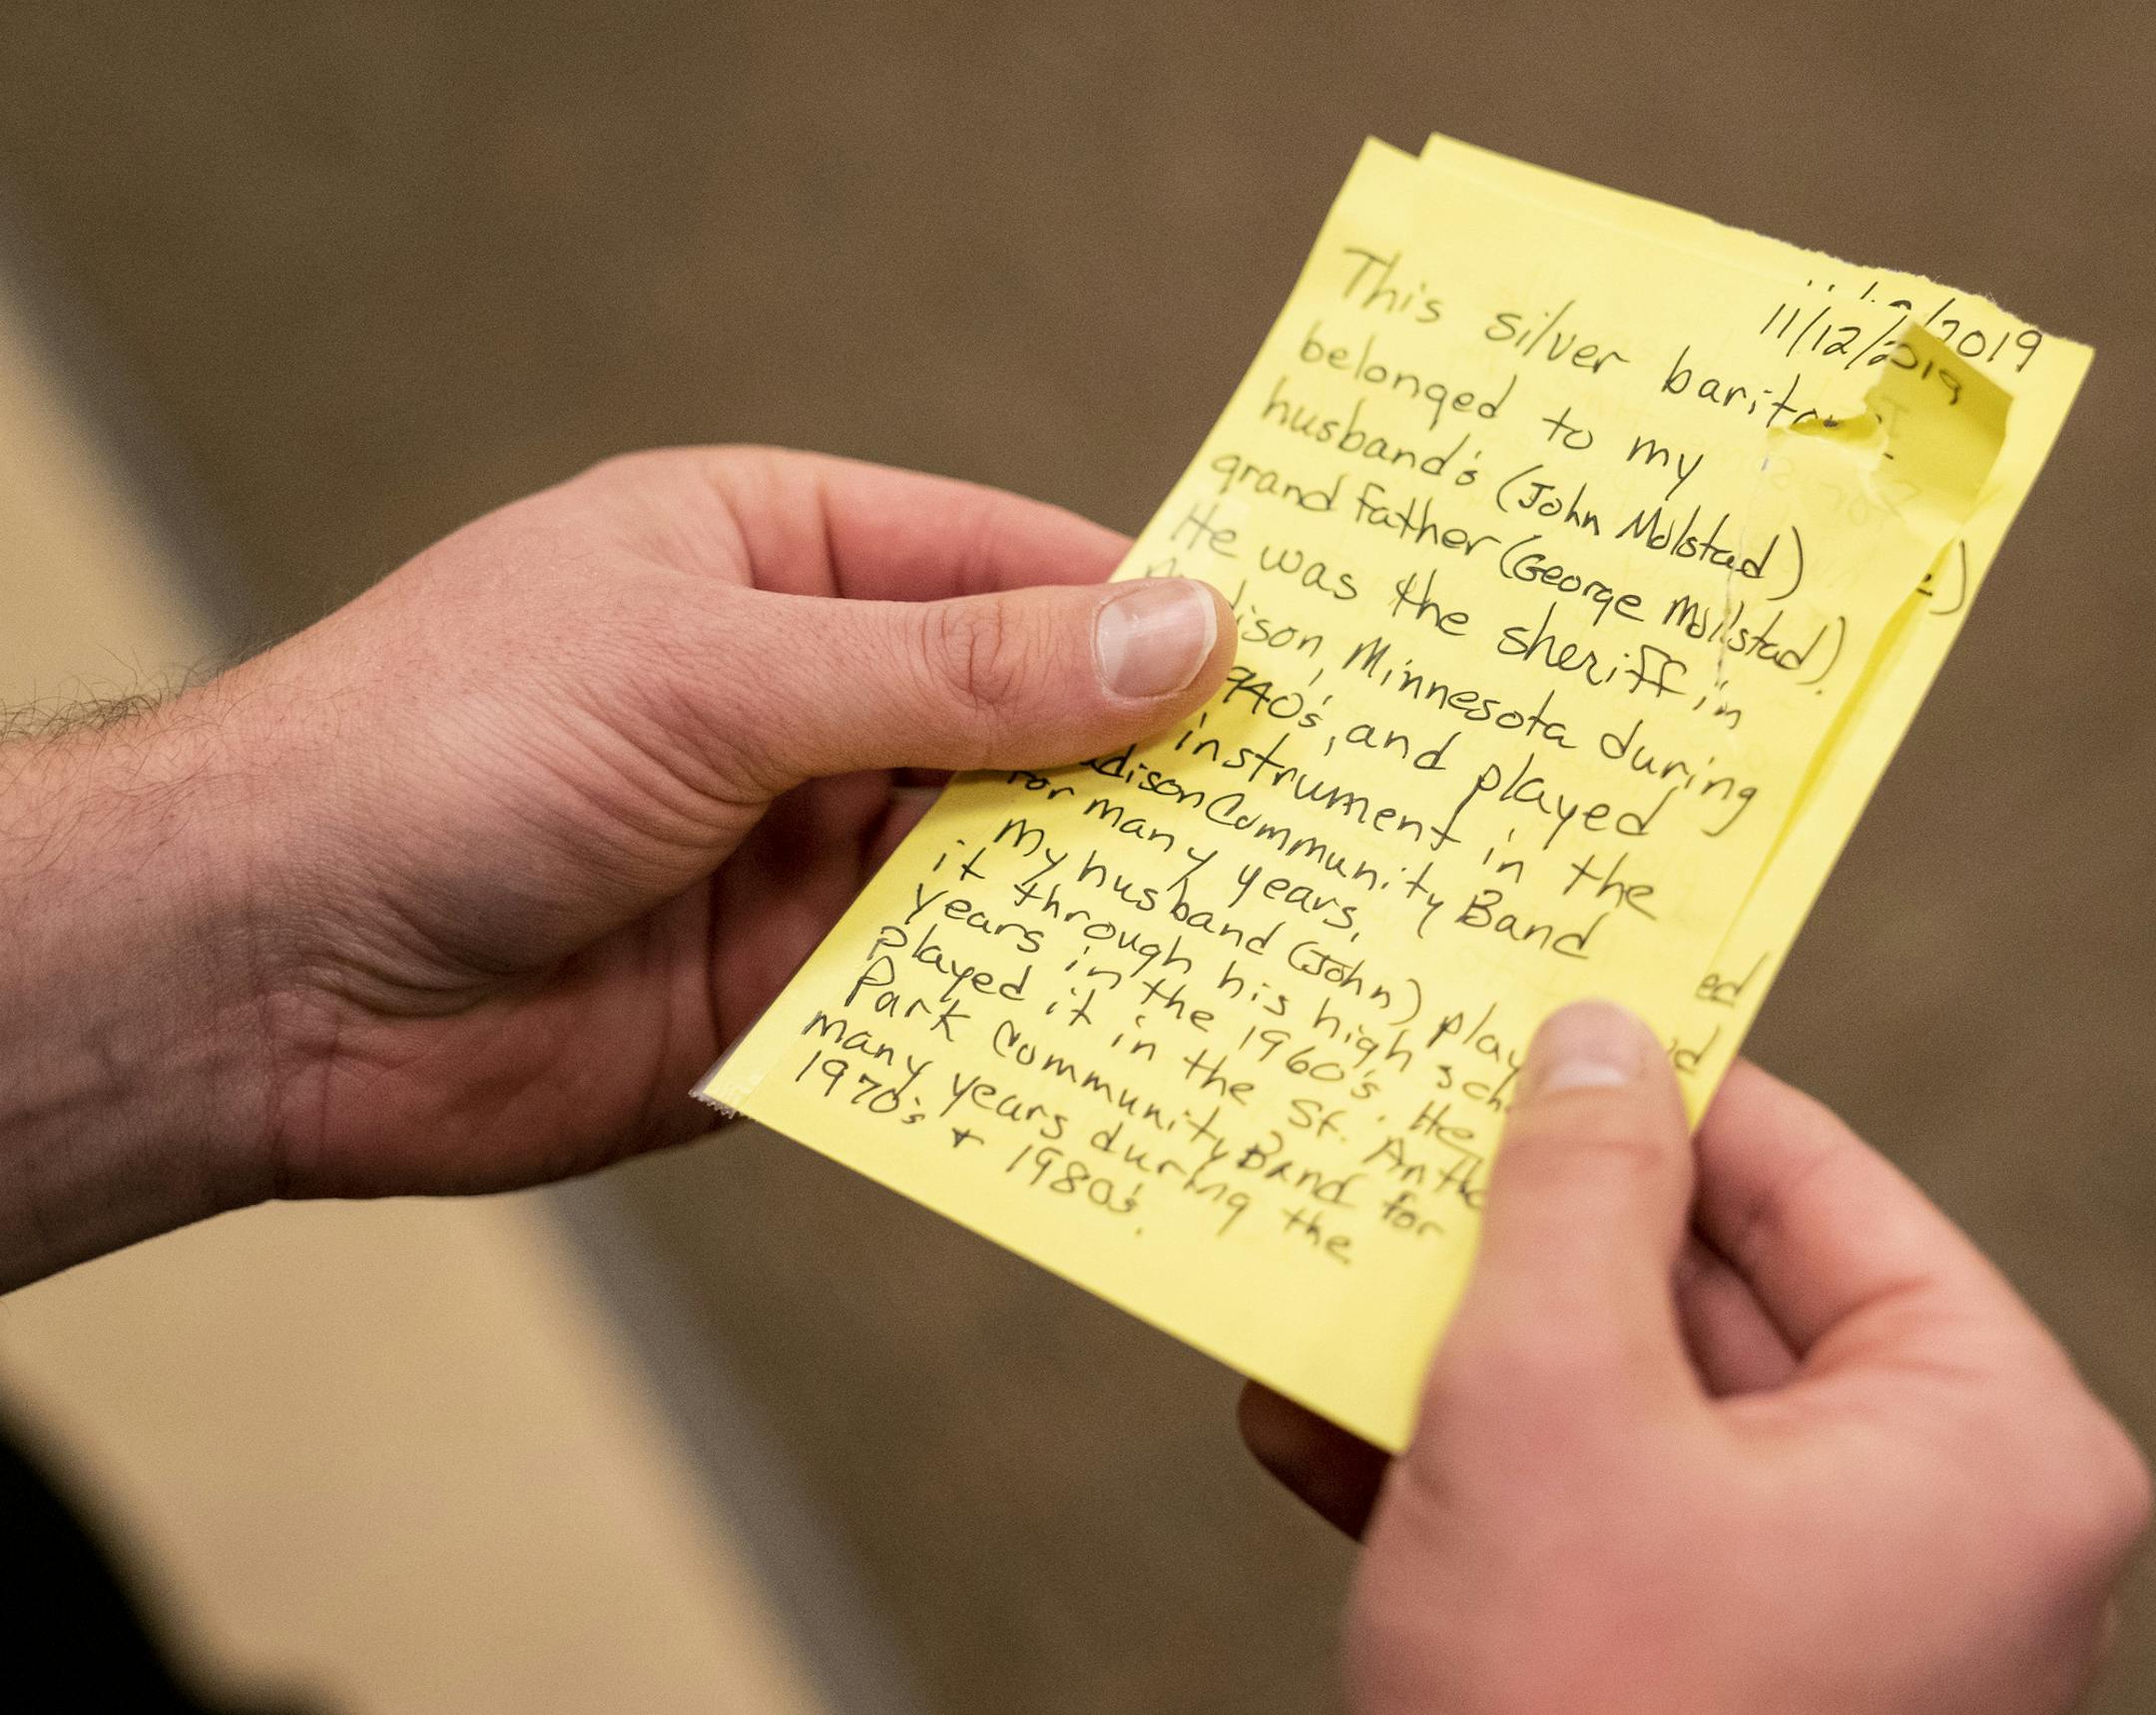 11/12/2019
11/12/2019
This silver
belonged to my
husband's (John Molstad)
grandfather (George Molstad).
He was the sheriff in
Minnesota during
and played
instrument in the
Community Band
for many years.
My husband (John)
it through his high
years in the 1960's. He
played it in the St.
Park Community Band for
many years during the
1970's + 1980's.